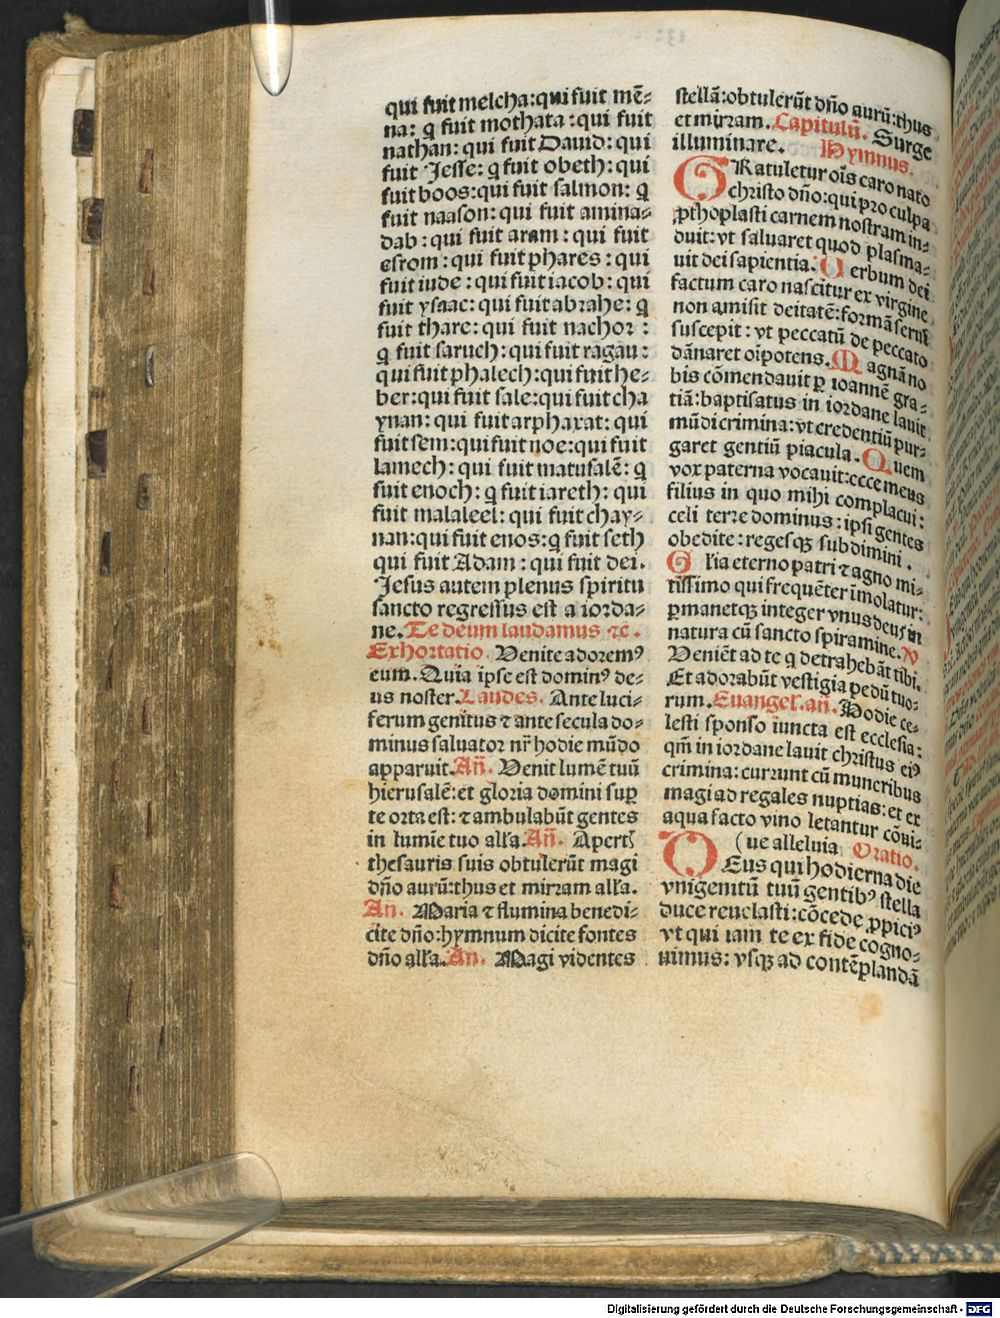 qui fuit melcha: qui fuit mē⸗
na: q̄ fuit mothata: qui fuit
nathan: qui fuit Dauid: qui
fuit Jesse: q̄ fuit obeth: qui
fuit boos: qui fuit salmon: q̄
fuit naason: qui fuit amina⸗
dab: qui fuit aram: qui fuit
esrom: qui fuit phares: qui
fuit iude: qui fuit iacob: qui
fuit ysaac: qui fuit abrahe: q̄
fuit thare: qui fuit nachor:
q̄ fuit saruch: qui fuit ragau:
qui fuit phalech: qui fuit he⸗
ber: qui fuit sale: qui fuit cha
ynan: qui fuit arphaxat: qui
fuit sem: qui fuit noe: qui fuit
lamech: qui fuit matusalē: q̄
fuit enoch: q̄ fuit iareth: qui
fuit malaleel: qui fuit chay⸗
nan: qui fuit enos: q̄ fuit seth
qui fuit Adam: qui fuit dei.
Jesus autem plenus spiritu
sancto regressus est a iorda⸗
ne. Te deum laudamus ⁊c.
Exhortatio. Venite adoremꝰ
eum. Quia ipse est dominꝰ de⸗
us noster. Laudes. Ante luci⸗
ferum genitus ⁊ ante secula do⸗
minus saluator nr̄ hodie mūdo
apparuit. Añ. Venit lumē tuū
hierusalē: et gloria domini sup̄
te orta est: ⁊ ambulabūt gentes
in lumīe tuo alľa. Añ. Apert{
thesauris suis obtulerūt magi
dño aurū: thus et mirram alľa.
An. Maria ⁊ flumina benedi⸗
cite dño: hymnum dicite fontes
dño alľa. An. Magi videntes
stellā: obtulerūt dño aurū: thus
et mirram. Capitulū. Surge
illuminare. Hymnus.
GRatuletur oīs caro nato
christo dño: qui pro culpa
ꝓthoplasti carnem nostram in⸗
duit: vt saluaret quod plasma⸗
uit dei sapientia. Verbum dei
factum caro nascitur ex virgine
non amisit deitatē: formā serui
suscepit: vt peccatū de peccato
dānaret oīpotens. Magnā no
bis cōmendauit ꝑ ioannē gra⸗
tiā: baptisatus in iordane lauit
mūdi crimina: vt credentiū pur⸗
garet gentiū piacula. Quem
vox paterna vocauit: ecce meus
filius in quo mihi complacui:
celi terre dominus: ipsi gentes
obedite: regesqꝫ subdimini.
Glia eterno patri ⁊ agno mi⸗
tissimo qui frequēter īmolatur:
ꝑmanetqꝫ integer vnus deus in
natura cū sancto spiramine. V
Veniēt ad te q̄ detrahebāt tibi.
Et adorabūt vestigia pedū tuo⸗
rum. Euangeľ. añ. Hodie ce⸗
lesti sponso iuncta est ecclesia:
qm̄ in iordane lauit christus eiꝰ
crimina: currunt cū muneribus
magi ad regales nuptias: et ex
aqua facto vino letantur cōui⸗
(ue alleluia Oratio.
DEus qui hodierna die
vnigenitū tuū gentibꝰ stella
duce reuelasti: cōcede ꝓpiciꝰ
vt qui iam te ex fide cogno⸗
uimus: vsqꝫ ad contēplandā
Digitalisierung gefördert durch die Deutsche Forschungsgemeinschaft - DFG